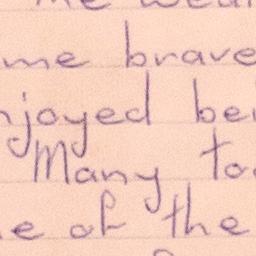 me brave
njoyed bei
Many to
e of the